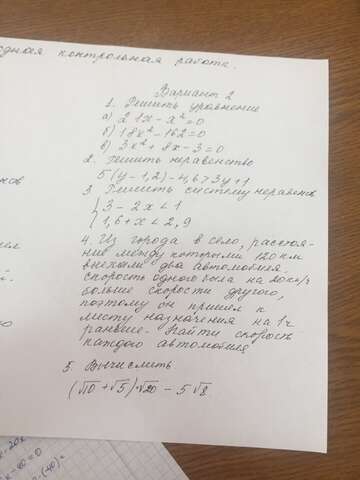 одная контрольная работа.
Вариант 2
1. Решить уравнение
а) 21x - x² = 0
б) 18x² - 162 = 0
в) 3x² + 8x - 3 = 0
2. Решить неравенство
5(y - 1,2) - 4,6 > 3y + 1
3. Решить систему неравенств
{3 - 2x < 1
1,6 + x < 2,9
4. Из города в село, расстоя-
ние между которыми 120 км
выехали два автомобиля.
Скорость одного была на 20 км/ч
больше скорости другого,
поэтому он пришел к
месту назначения на 1 ч
раньше. Найти скорость
каждого автомобиля
5. Вычислить
(√10 + √5)·√20 - 5√8